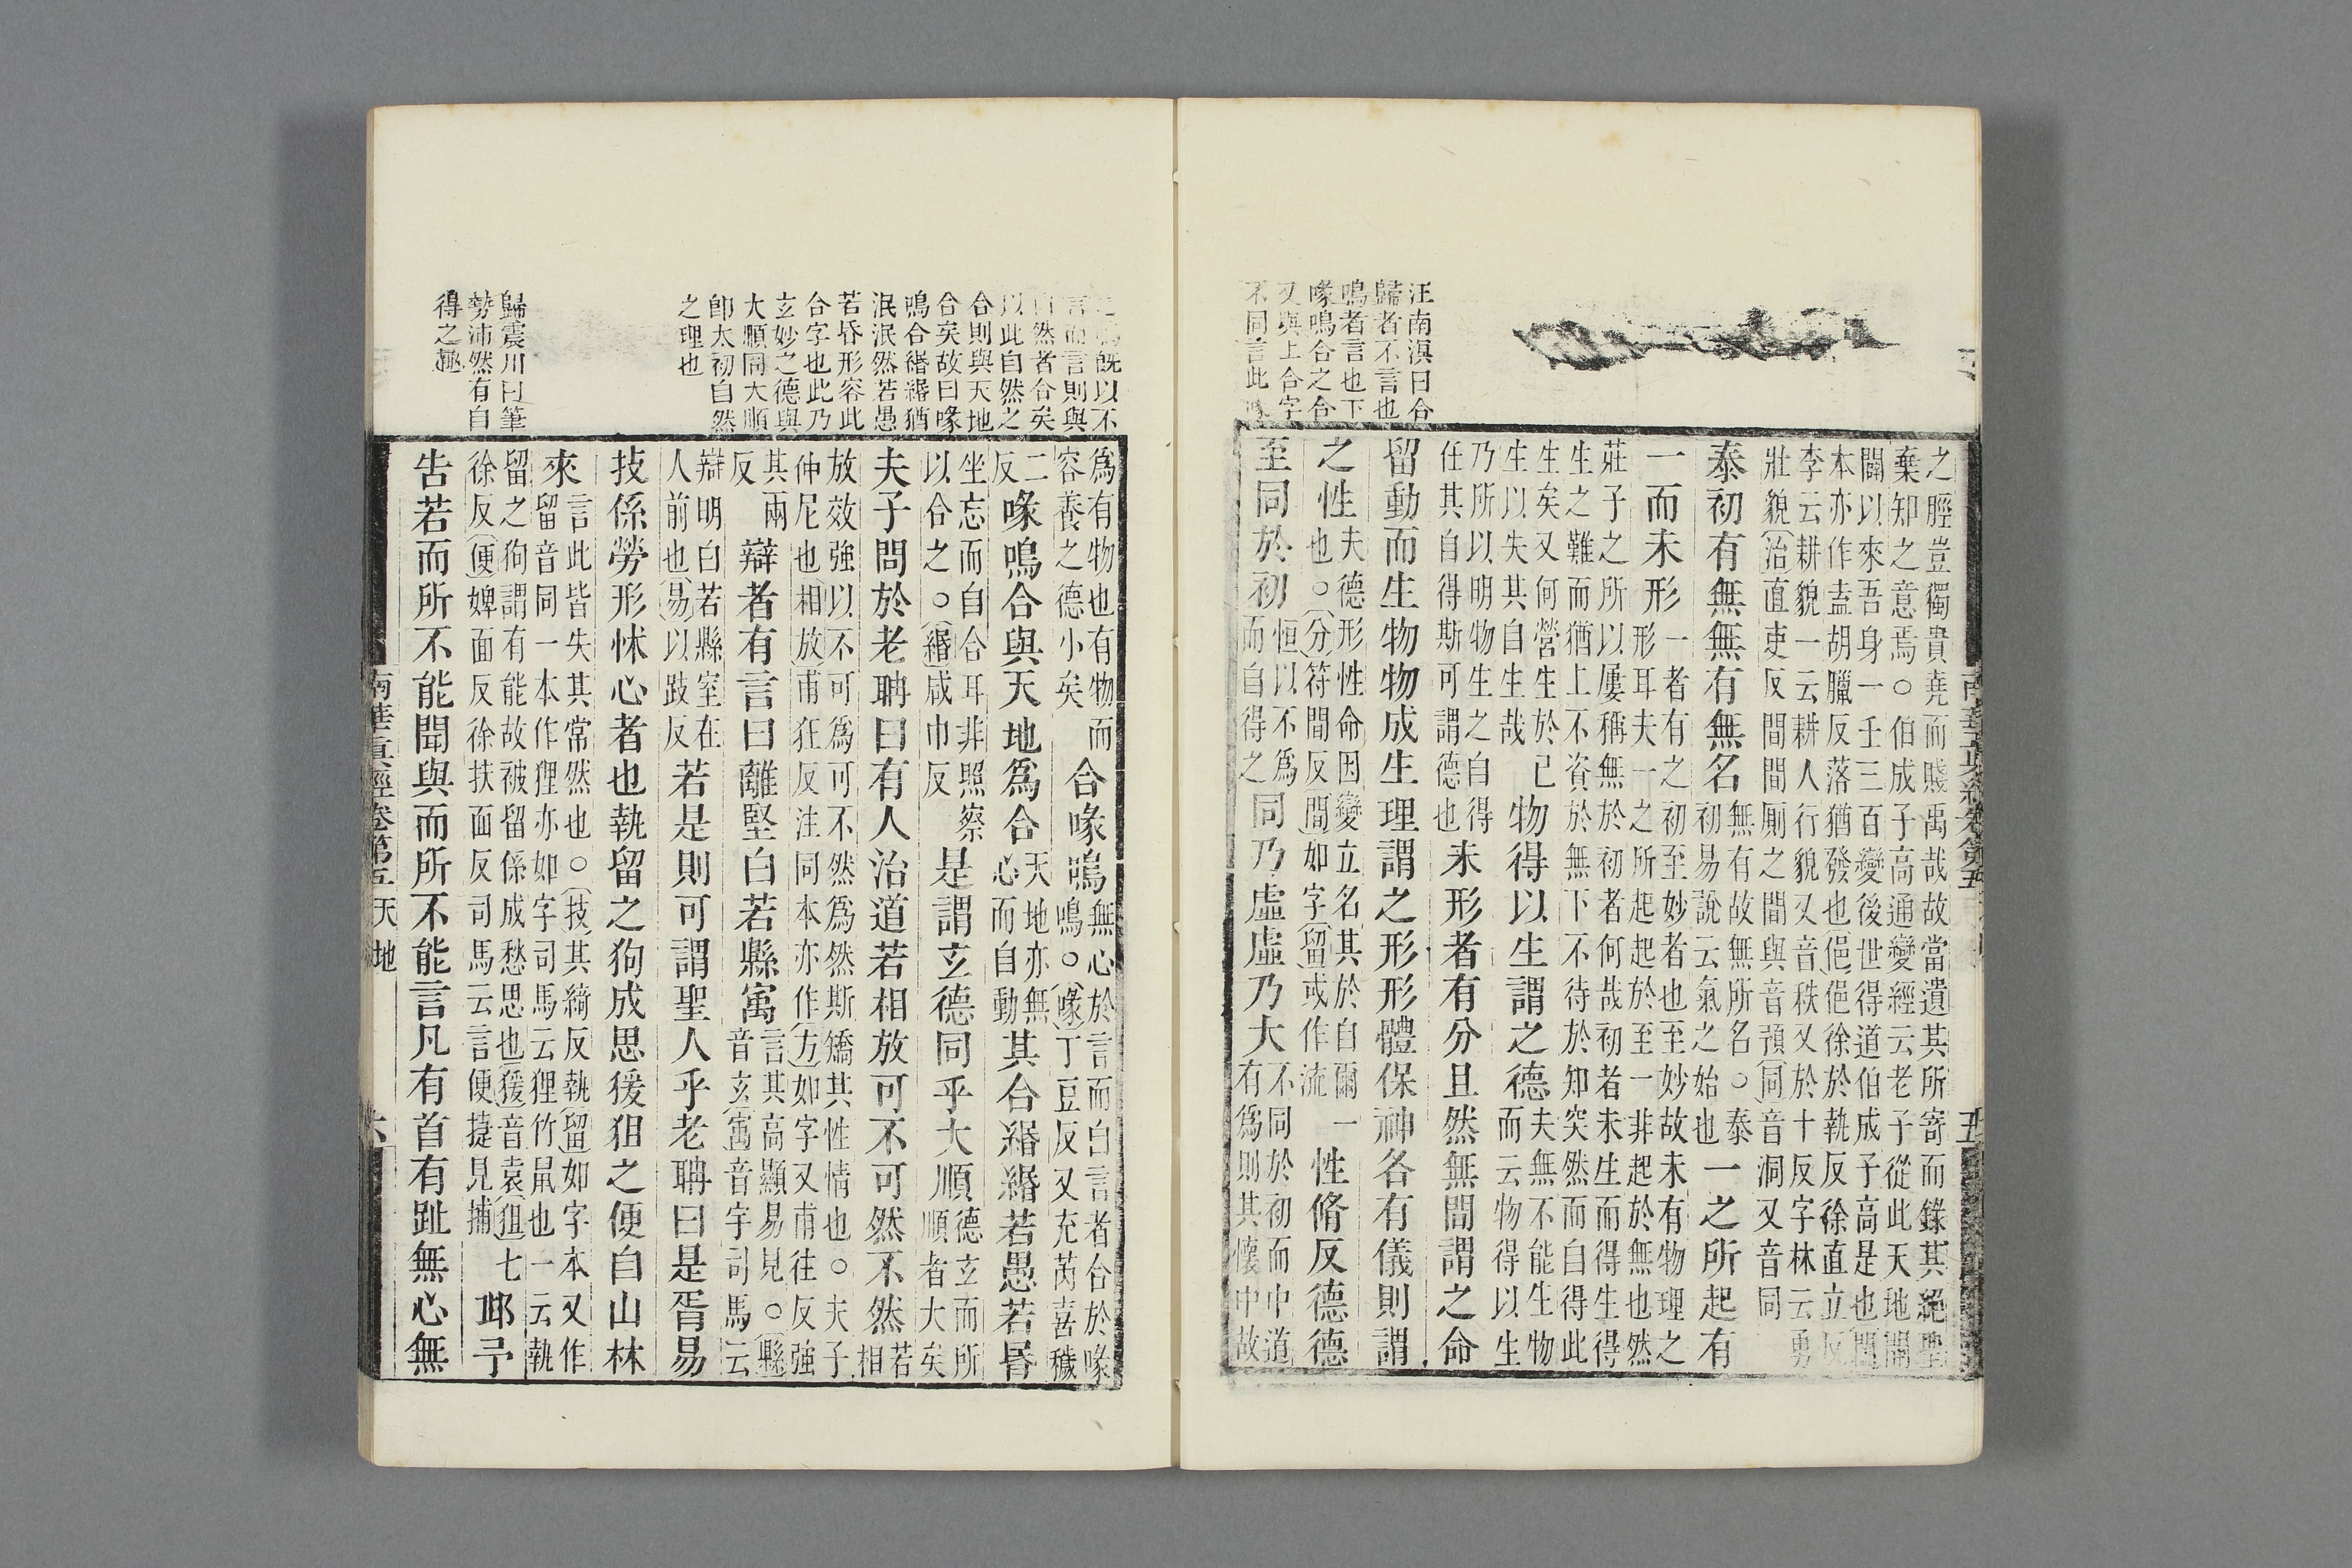 汪南溟曰合
歸者不言也
鳴者言也下
喙鳴合之合
又與上合字
不同言此喙
之脛豈獨貴堯而賤禹哉故當遺其所寄而錄其絕聖
棄知之意焉○伯成子高通變經云老子從此天地開
闢以來吾身一千三百變後世得道伯成子高是也闔
本亦作盍胡臘反落猶發也俋俋徐於執反徐直立反
李云耕貌一云耕人行貌又音秩又於十反字林云勇
壯貌治直吏反間間廁之間與音預同音洞又音同
泰初有無無有無名無有故無所名○泰初易說云氣之始也一之所起有
一而未形一者有之初至妙者也至妙故未有物理之形耳夫一之所起起於至一非起於無也然
莊子之所以屢稱無於初者何哉初者未生而得生得
生之難而猶上不資於無下不待於知突然而自得此
生矣又何營生於已生以失其自生哉物得以生謂之德夫無不能生物而云物得以生
乃所以明物生之自得任其自得斯可謂德也未形者有分且然無間謂之命
留動而生物物成生理謂之形形體保神各有儀則謂
之性夫德形性命因變立名其於自爾一也○分符間反間如字留或作流性脩反德德
至同於初恒以不爲而自得之同乃虛虛乃大不同於初而中道有爲則其懷中故
南華真經卷第五
五
鳴既以不
言而言則與
自然者合矣
以此自然之
合則與天地
合矣故曰喙
鳴合緡緡猶
泯泯然若愚
若昬形容此
合字也此乃
玄妙之德與
大順同大順
卽太初自然
之理也
歸震川曰筆
勢沛然有自
得之趣
爲有物也有物而容養之德小矣合喙鳴無心於言而自言者合於喙鳴○喙丁豆反又充芮喜穢
二反喙鳴合與天地爲合天地亦無心而自動其合緡緡若愚若昬
坐忘而自合耳非照察以合之○緡咸巾反是謂玄德同乎大順德玄而所順者大矣
夫子問於老聃曰有人治道若相放可不可然不然若相
放效強以不可爲可不然爲然斯矯其性情也○夫子
仲尼也相放甫狂反注同本亦作方如字又甫往反強
其兩反辯者有言曰離堅白若縣㝢言其高顯易見○縣音玄㝢音宇司馬云
辯明白若縣室在人前也易以豉反若是則可謂聖人乎老聃曰是胥易
技係勞形怵心者也執留之狗成思猨狙之便自山林
來言此皆失其常然也○技其綺反執留如字本又作留音同一本作狸亦如字司馬云狸竹鼠也一云執
留之狗謂有能故被留係成愁思也猨音袁狙七徐反便婢面反徐扶面反司馬云言便捷見捕邱予
告若而所不能聞與而所不能言凡有首有趾無心無
南華真經卷第五 天地
六